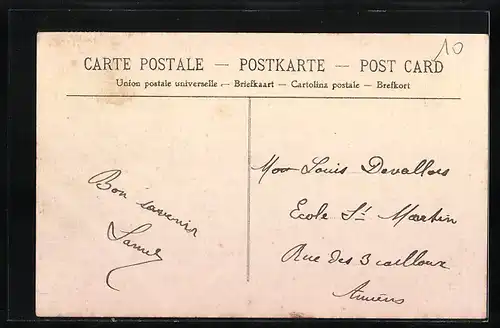 10
CARTE POSTALE — POSTKARTE — POST CARD
Union postale universelle. — Briefkaart — Cartolina postale — Brefkort
Bon souvenir
Mor Louis Devallois
Ecole St Martin
Rue des 3 cailloux
Amiens